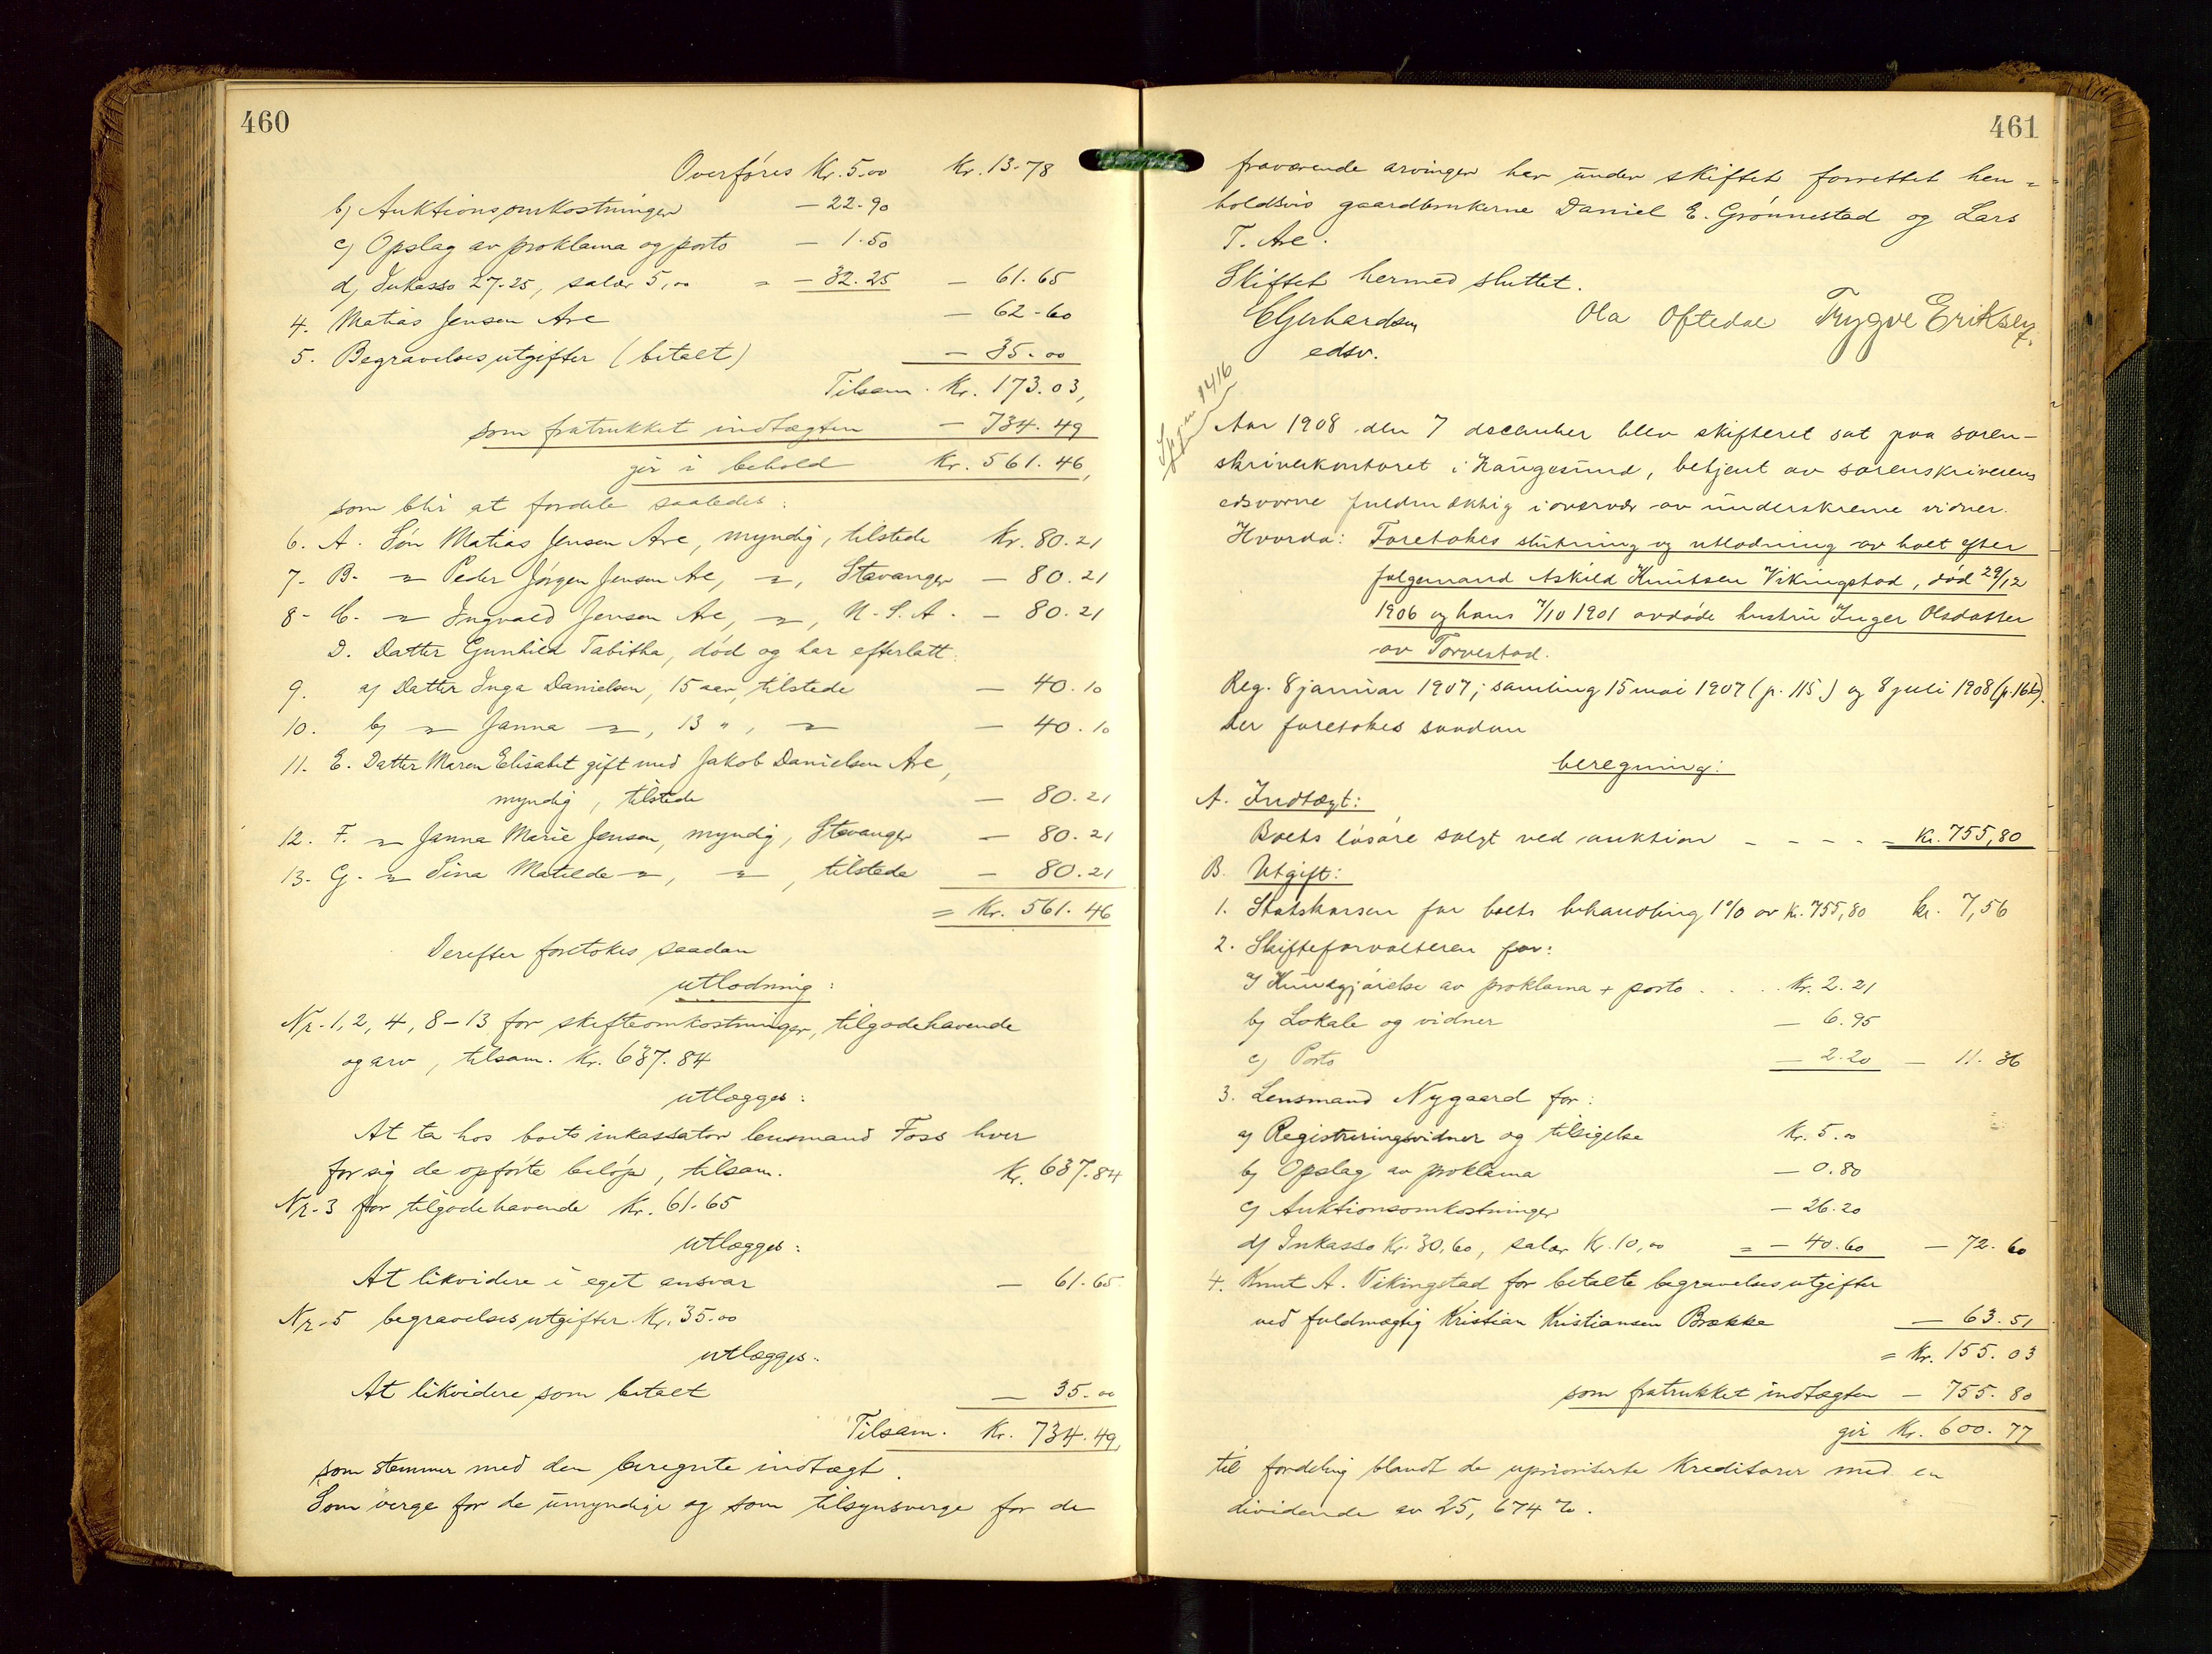 460
Overføres Kr. 5.00 Kr. 13.78
b) Auktionsomkostninger — 22.90
c) Opslag av proklama og porto — 1.50
d) Inkasso 27.25, salær 5,00 = — 32.25 — 61.65
4. Matias Jensen Are — 62.60
5. Begravelsesutgifter (betalt) — 35.00
Tilsam. Kr. 173.03,
som fratrukket indtægten — 734.49
gir i behold Kr. 561.46,
som blir at fordele saaledes:
6. A. Søn Matias Jensen Are, myndig, tilstede Kr. 80.21
7. B. " Peder Jørgen Jensen Are, ", Stavanger — 80.21
8. C. " Ingvald Jensen Are, ", U.S.A. — 80.21
D. Datter Gunhild Tabitha, død og har efterlatt:
9. a) Datter Inga Danielsen, 15 aar, tilstede — 40.10
10. b) " Janna ", 13 ", " — 40.10
11. E. Datter Maren Elisabet gift med Jakob Danielsen Are,
myndig, tilstede — 80.21
12. F. " Janna Marie Jensen, myndig, Stavanger — 80.21
13. G. " Sina Matilde ", ", tilstede — 80.21
= Kr. 561.46
Derefter foretokes saadan
utlodning:
Nr. 1, 2, 4, 8–13 for skifteomkostninger, tilgodehavende
og arv, tilsam. Kr. 637.84
utlægges:
At ta hos boets inkassator lensmand Foss hver
for sig de opførte beløp, tilsam. Kr. 637.84
Nr. 3 for tilgodehavende Kr. 61.65
utlægges:
At likvidere i eget ansvar — 61.65
Nr. 5 begravelsesutgifter Kr. 35.00
utlægges:
At likvidere som betalt — 35.00
Tilsam. Kr. 734.49,
som stemmer med den beregnte indtægt.
Som verge for de umyndige og som tilsynsverge for de
461
fraværende arvinger har under skiftet forrettet hen-
holdsvis gaardbrukerne Daniel E. Grønnestad og Lars
T. Are.
Skiftet hermed sluttet.
EGerhardsen Ola Oftedal Trygve Eriksen
edsv.
1416
Aar 1908 den 7 december blev skifteret sat paa soren-
skriverkontoret i Haugesund, betjent av sorenskriverens
edsvorne fuldmæktig i overvær av underskrevne vidner.
Hvorda: Foretokes slutning og utlodning av boet efter
følgemand Askild Knutsen Vikingstad, død 29/12
1906 og hans 7/10 1901 avdøde hustru Inger Olsdatter
av Torvestad.
Reg. 8 januar 1907; samling 15 mai 1907 (p. 115) og 8 juli 1908 (p. 16).
Der foretokes saadan
beregning:
A. Indtægt:
Boets løsøre solgt ved auktion - - - - - Kr. 755,80
B. Utgift:
1. Statskassen for boets behandling 1% av Kr. 755,80 kr. 7,56
2. Skifteforvalteren for:
a) Kundgjørelse av proklama + porto . . . Kr. 2.21
b) Lokale og vidner — 6.95
c) Porto — 2.20 — 11.36
3. Lensmand Nygaard for:
a) Registreringsvidner og tilsigelse Kr. 5.00
b) Opslag av proklama — 0.80
c) Auktionsomkostninger — 26.20
d) Inkasso Kr. 30,60, salær Kr. 10,00 = — 40.60 — 72.60
4. Knut A. Vikingstad for betalte begravelsesutgifter
ved fuldmægtig Kristian Kristiansen Brække — 63.51
= Kr. 155.03
som fratrukket indtægten — 755.80
gir Kr. 600.77
til fordeling blandt de uprioriterte kreditorer med en
dividende av 25,674 %.